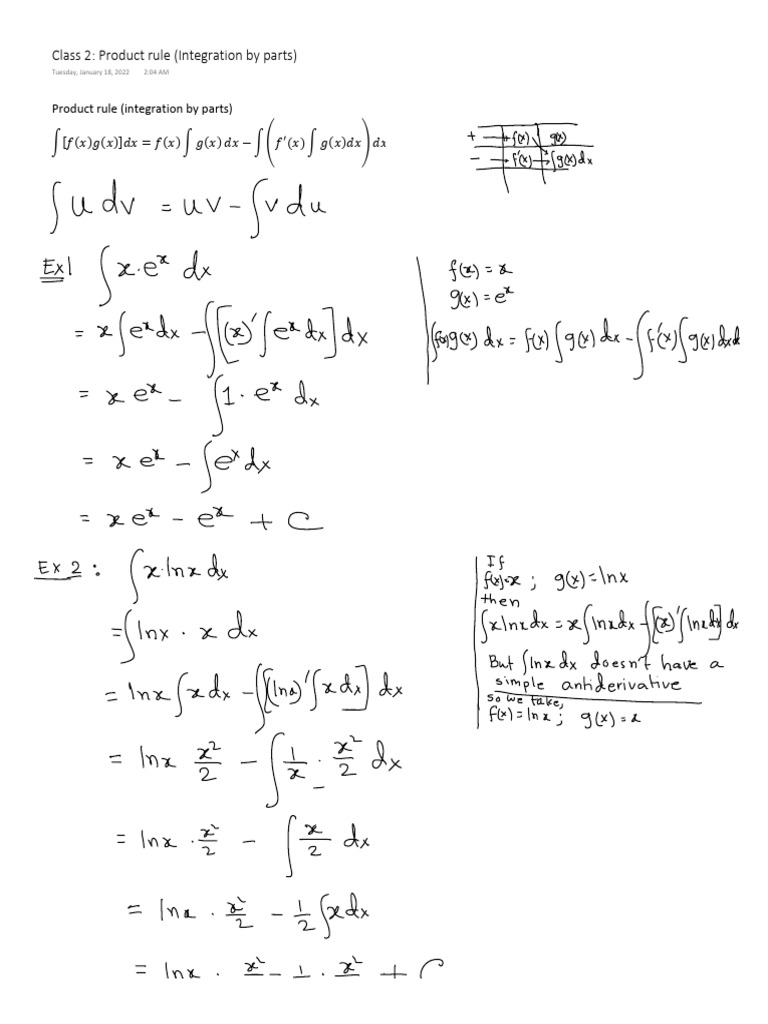 Class 2: Product rule (Integration by parts)
Tuesday, January 18, 2022 2:04 AM
Product rule (integration by parts)
∫[f(x)g(x)]dx = f(x) ∫ g(x) dx − ∫ ( f′(x) ∫ g(x)dx ) dx
+ → f(x) g(x)
− → f′(x) → ∫g(x)dx
∫ u dv = uv − ∫ v du
Ex1 ∫ x·eˣ dx
= x ∫eˣdx − ∫[(x)′ ∫eˣdx] dx
= x eˣ − ∫ 1·eˣ dx
= x eˣ − ∫eˣdx
= x eˣ − eˣ + C
f(x) = x
g(x) = eˣ
∫f(x)g(x) dx = f(x) ∫g(x) dx − ∫f′(x) ∫g(x) dxdx
Ex 2 : ∫ x·lnx dx
= ∫lnx · x dx
= lnx ∫x dx − ∫[(lnx)′ ∫x dx] dx
= lnx x²/2 − ∫ 1/x · x²/2 dx
= lnx · x²/2 − ∫ x/2 dx
= lnx · x²/2 − 1/2 ∫xdx
= lnx · x² − 1 · x² + C
If
f(x)=x ; g(x)=lnx
then
∫xlnxdx = x∫lnxdx − ∫[(x)′∫lnxdx] dx
But ∫lnx dx doesn't have a
simple antiderivative
so we take,
f(x) = lnx ; g(x) = x